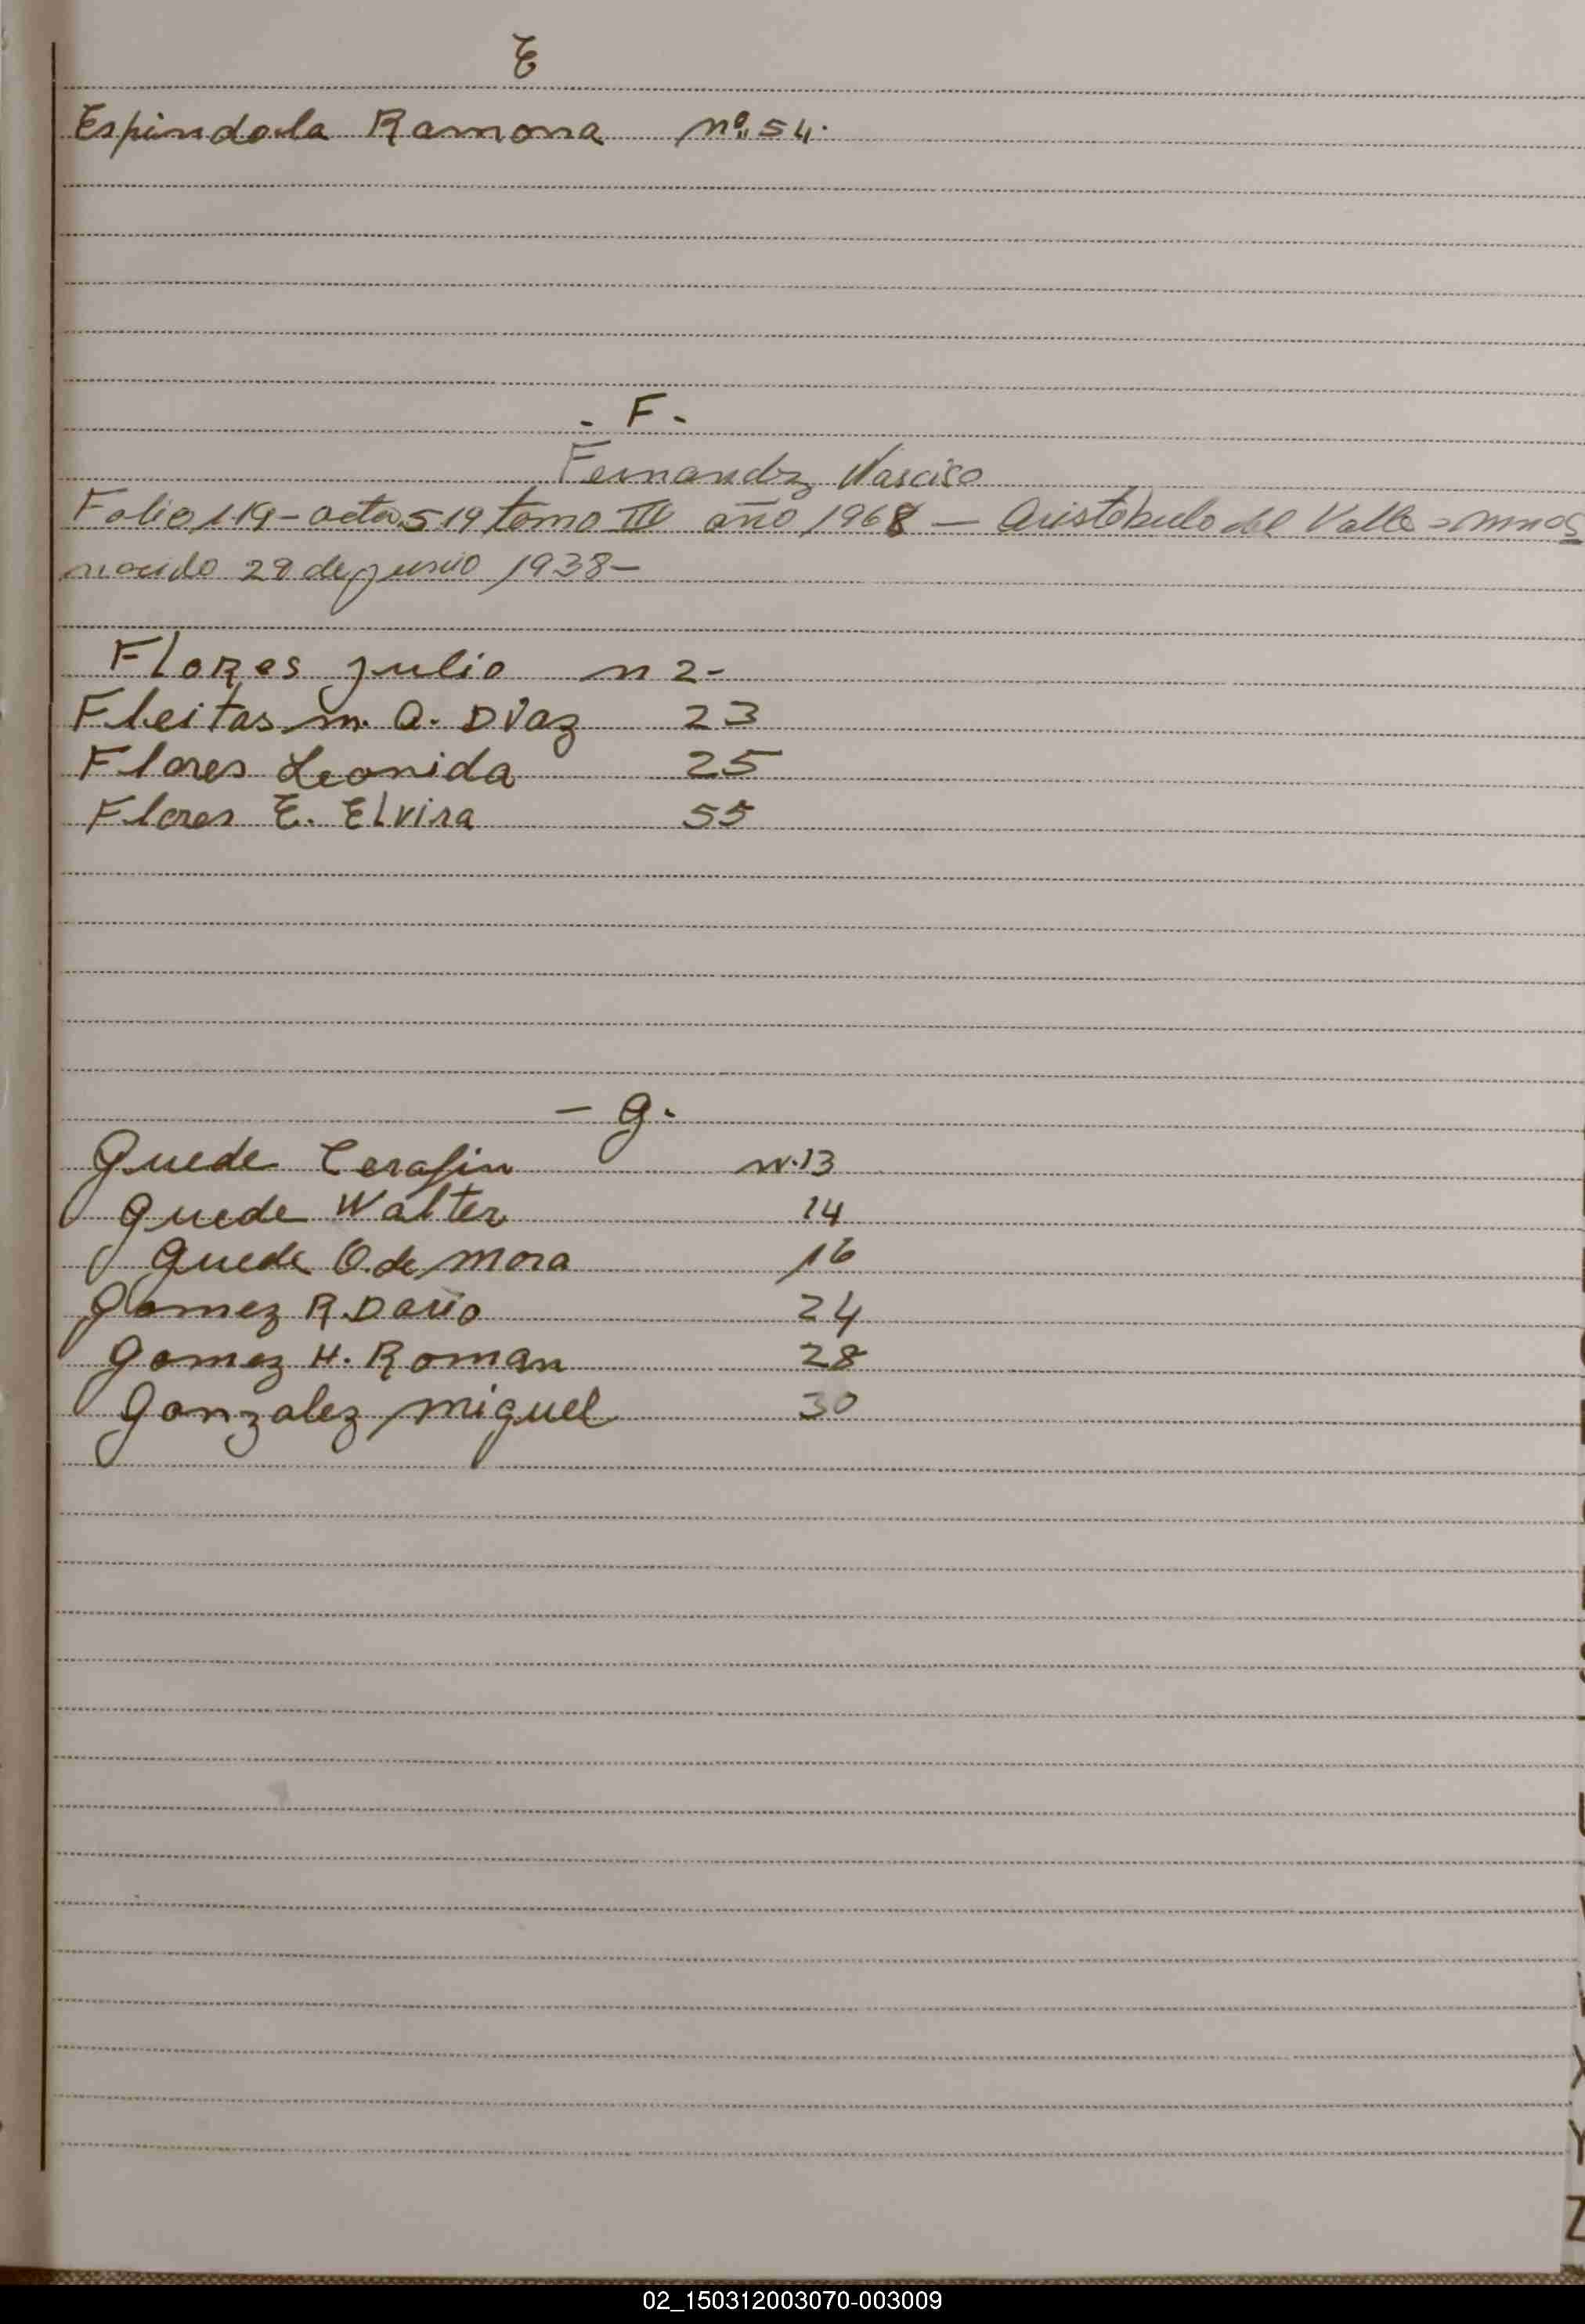 E
Espindola Ramona nº 54.
- F -
Fernandz Narciso
Folio 119 - acta 519 tomo III año 1968 - Aristobulo del Valle = mnes
nacido 29 de junio 1938 -
Flores Julio n 2-
Fleitas m. a. Diaz 23
Flores Leonida 25
Flores E. Elvira 55
- g.
Guede Cerafin n. 13
Guede Walter 14
Guede O. de Mora 16
Gomez R. Dario 24
Gomez H. Roman 28
Gonzalez Miguel 30
X
Y
Z
02_150312003070-003009